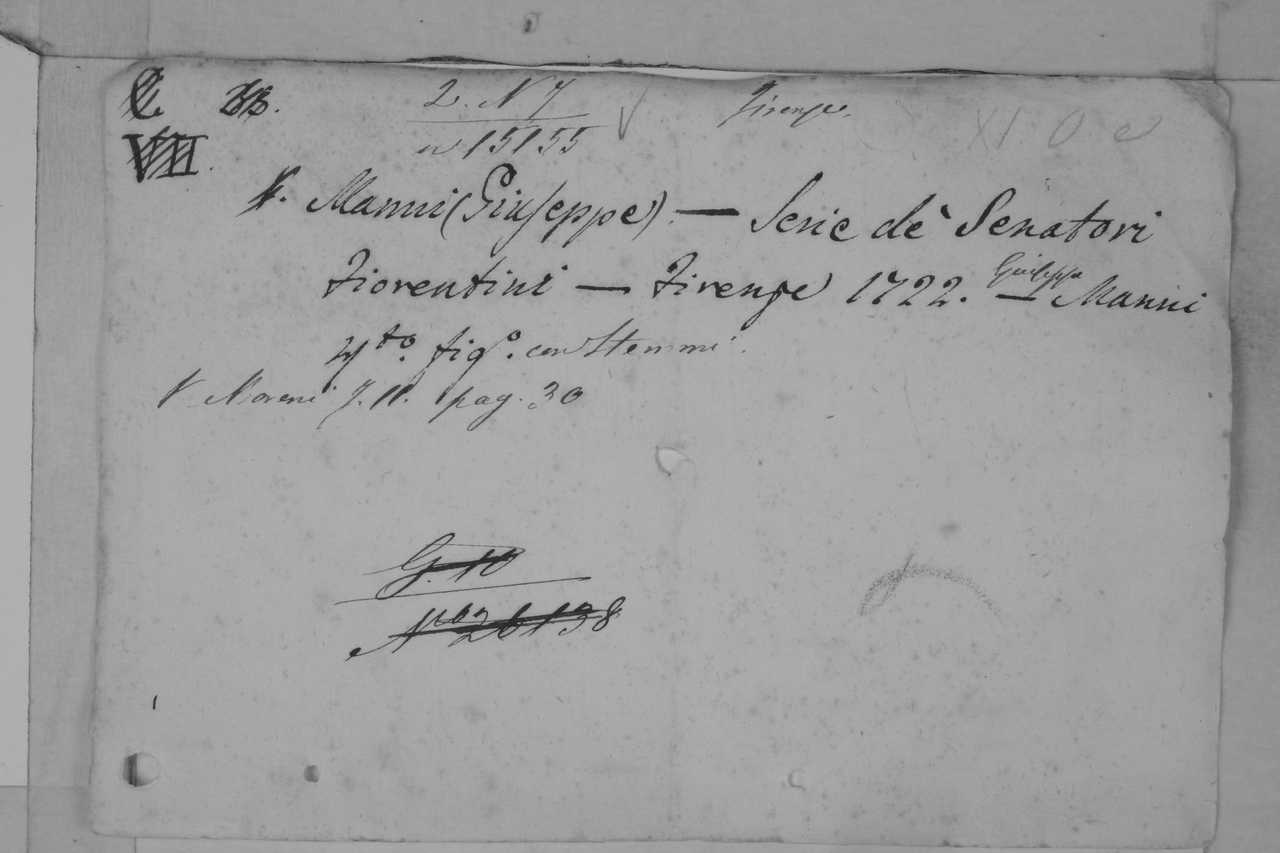 2. N 7
Firenze.
n 15155
VIII.
V. Manni (Giuseppe) — Serie de' Senatori
Fiorentini — Firenze 1722. — Giuseppe Manni
4to. figo. con Stemmi.
V. Moreni T. II. pag. 30
G. 10
No 26138